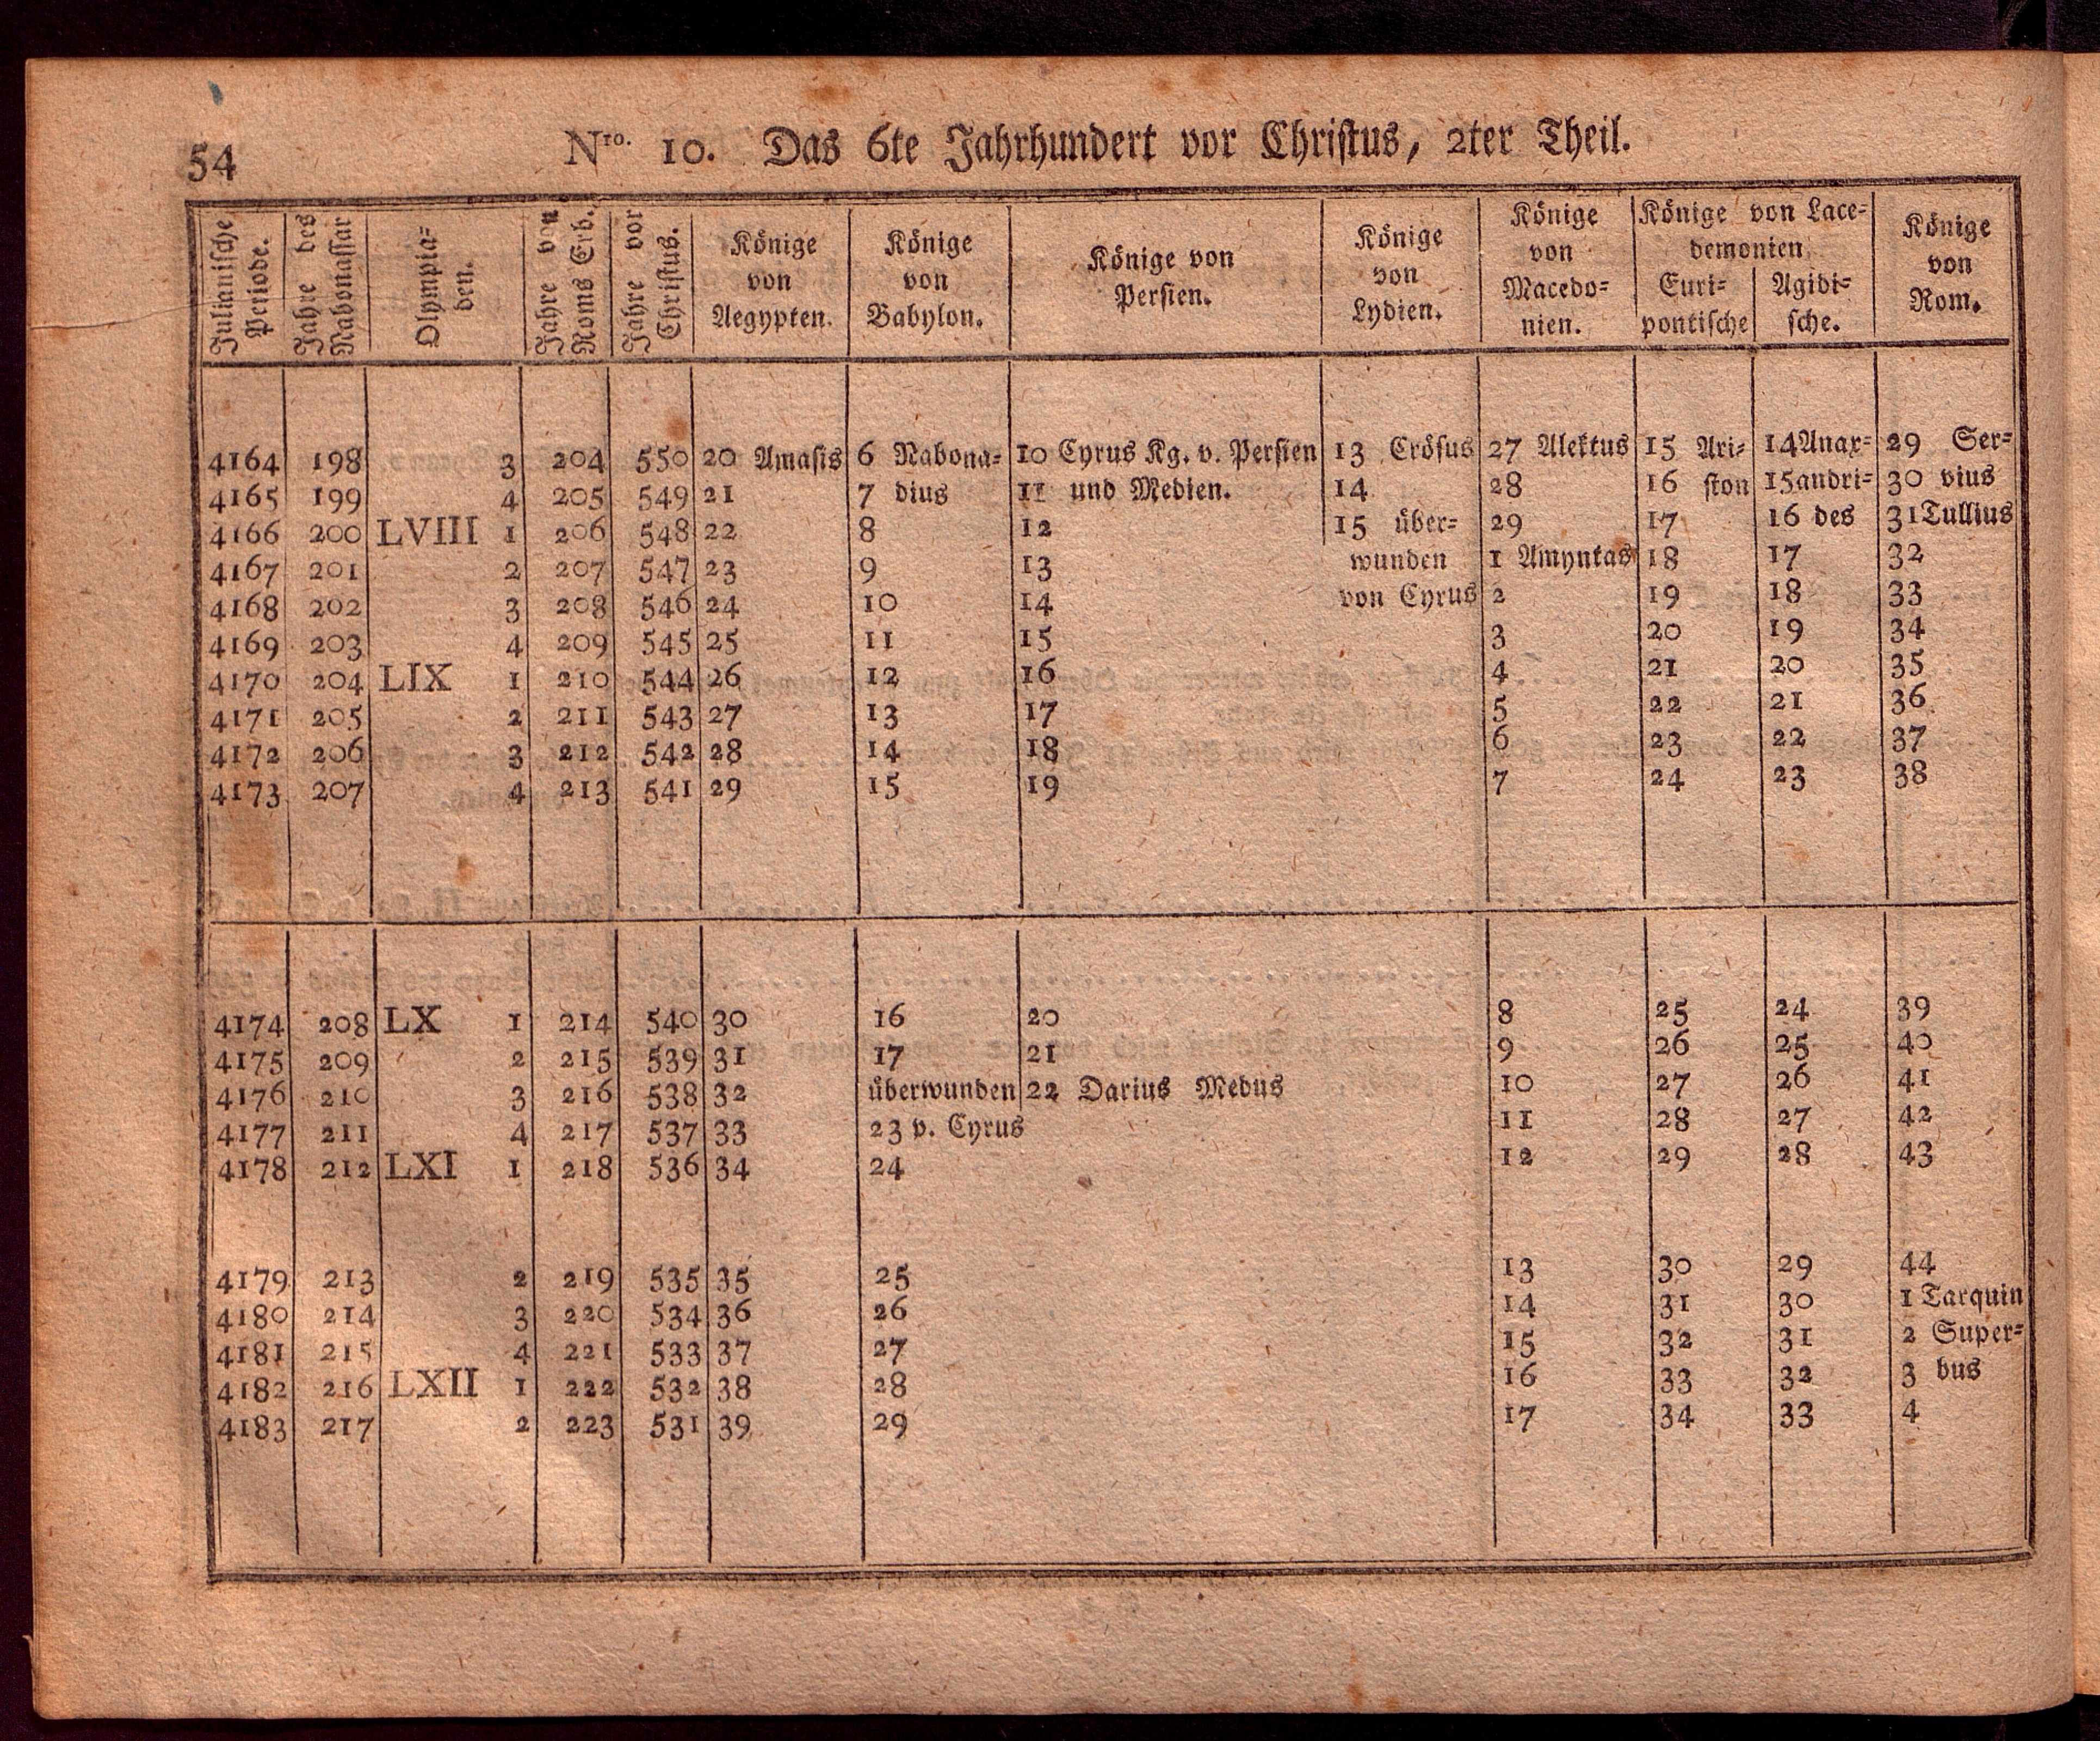 54
Nro. 10. Das 6te Jahrhundert vor Christus, 2ter Theil.
Julianische Periode. | Jahre des Nabonassar | Olympia=den. | Jahre von Roms Erb. | Jahre vor Christus. | Könige von Aegypten. | Könige von Babylon. | Könige von Persien. | Könige von Lydien. | Könige von Macedo=nien. | Könige von Lace=demonien Euri=pontische | Agidi=sche. | Könige von Rom.
4164 198 3 204 550 20 Amasis 6 Nabona= 10 Cyrus Kg. v. Persien 13 Crösus 27 Alektus 15 Ari= 14 Anax= 29 Ser=
4165 199 4 205 549 21 7 dius 11 und Medien. 14 28 16 ston 15 andri= 30 vius
4166 200 LVIII 1 206 548 22 8 12 15 über= 29 17 16 des 31 Tullius
4167 201 2 207 547 23 9 13 wunden 1 Amyntas 18 17 32
4168 202 3 208 546 24 10 14 von Cyrus 2 19 18 33
4169 203 4 209 545 25 11 15 3 20 19 34
4170 204 LIX 1 210 544 26 12 16 4 21 20 35
4171 205 2 211 543 27 13 17 5 22 21 36
4172 206 3 212 542 28 14 18 6 23 22 37
4173 207 4 213 541 29 15 19 7 24 23 38
4174 208 LX 1 214 540 30 16 20 8 25 24 39
4175 209 2 215 539 31 17 21 9 26 25 40
4176 210 3 216 538 32 überwunden 22 Darius Medus 10 27 26 41
4177 211 4 217 537 33 23 v. Cyrus 11 28 27 42
4178 212 LXI 1 218 536 34 24 12 29 28 43
4179 213 2 219 535 35 25 13 30 29 44
4180 214 3 220 534 36 26 14 31 30 1 Tarquin
4181 215 4 221 533 37 27 15 32 31 2 Super=
4182 216 LXII 1 222 532 38 28 16 33 32 3 bus
4183 217 2 223 531 39 29 17 34 33 4